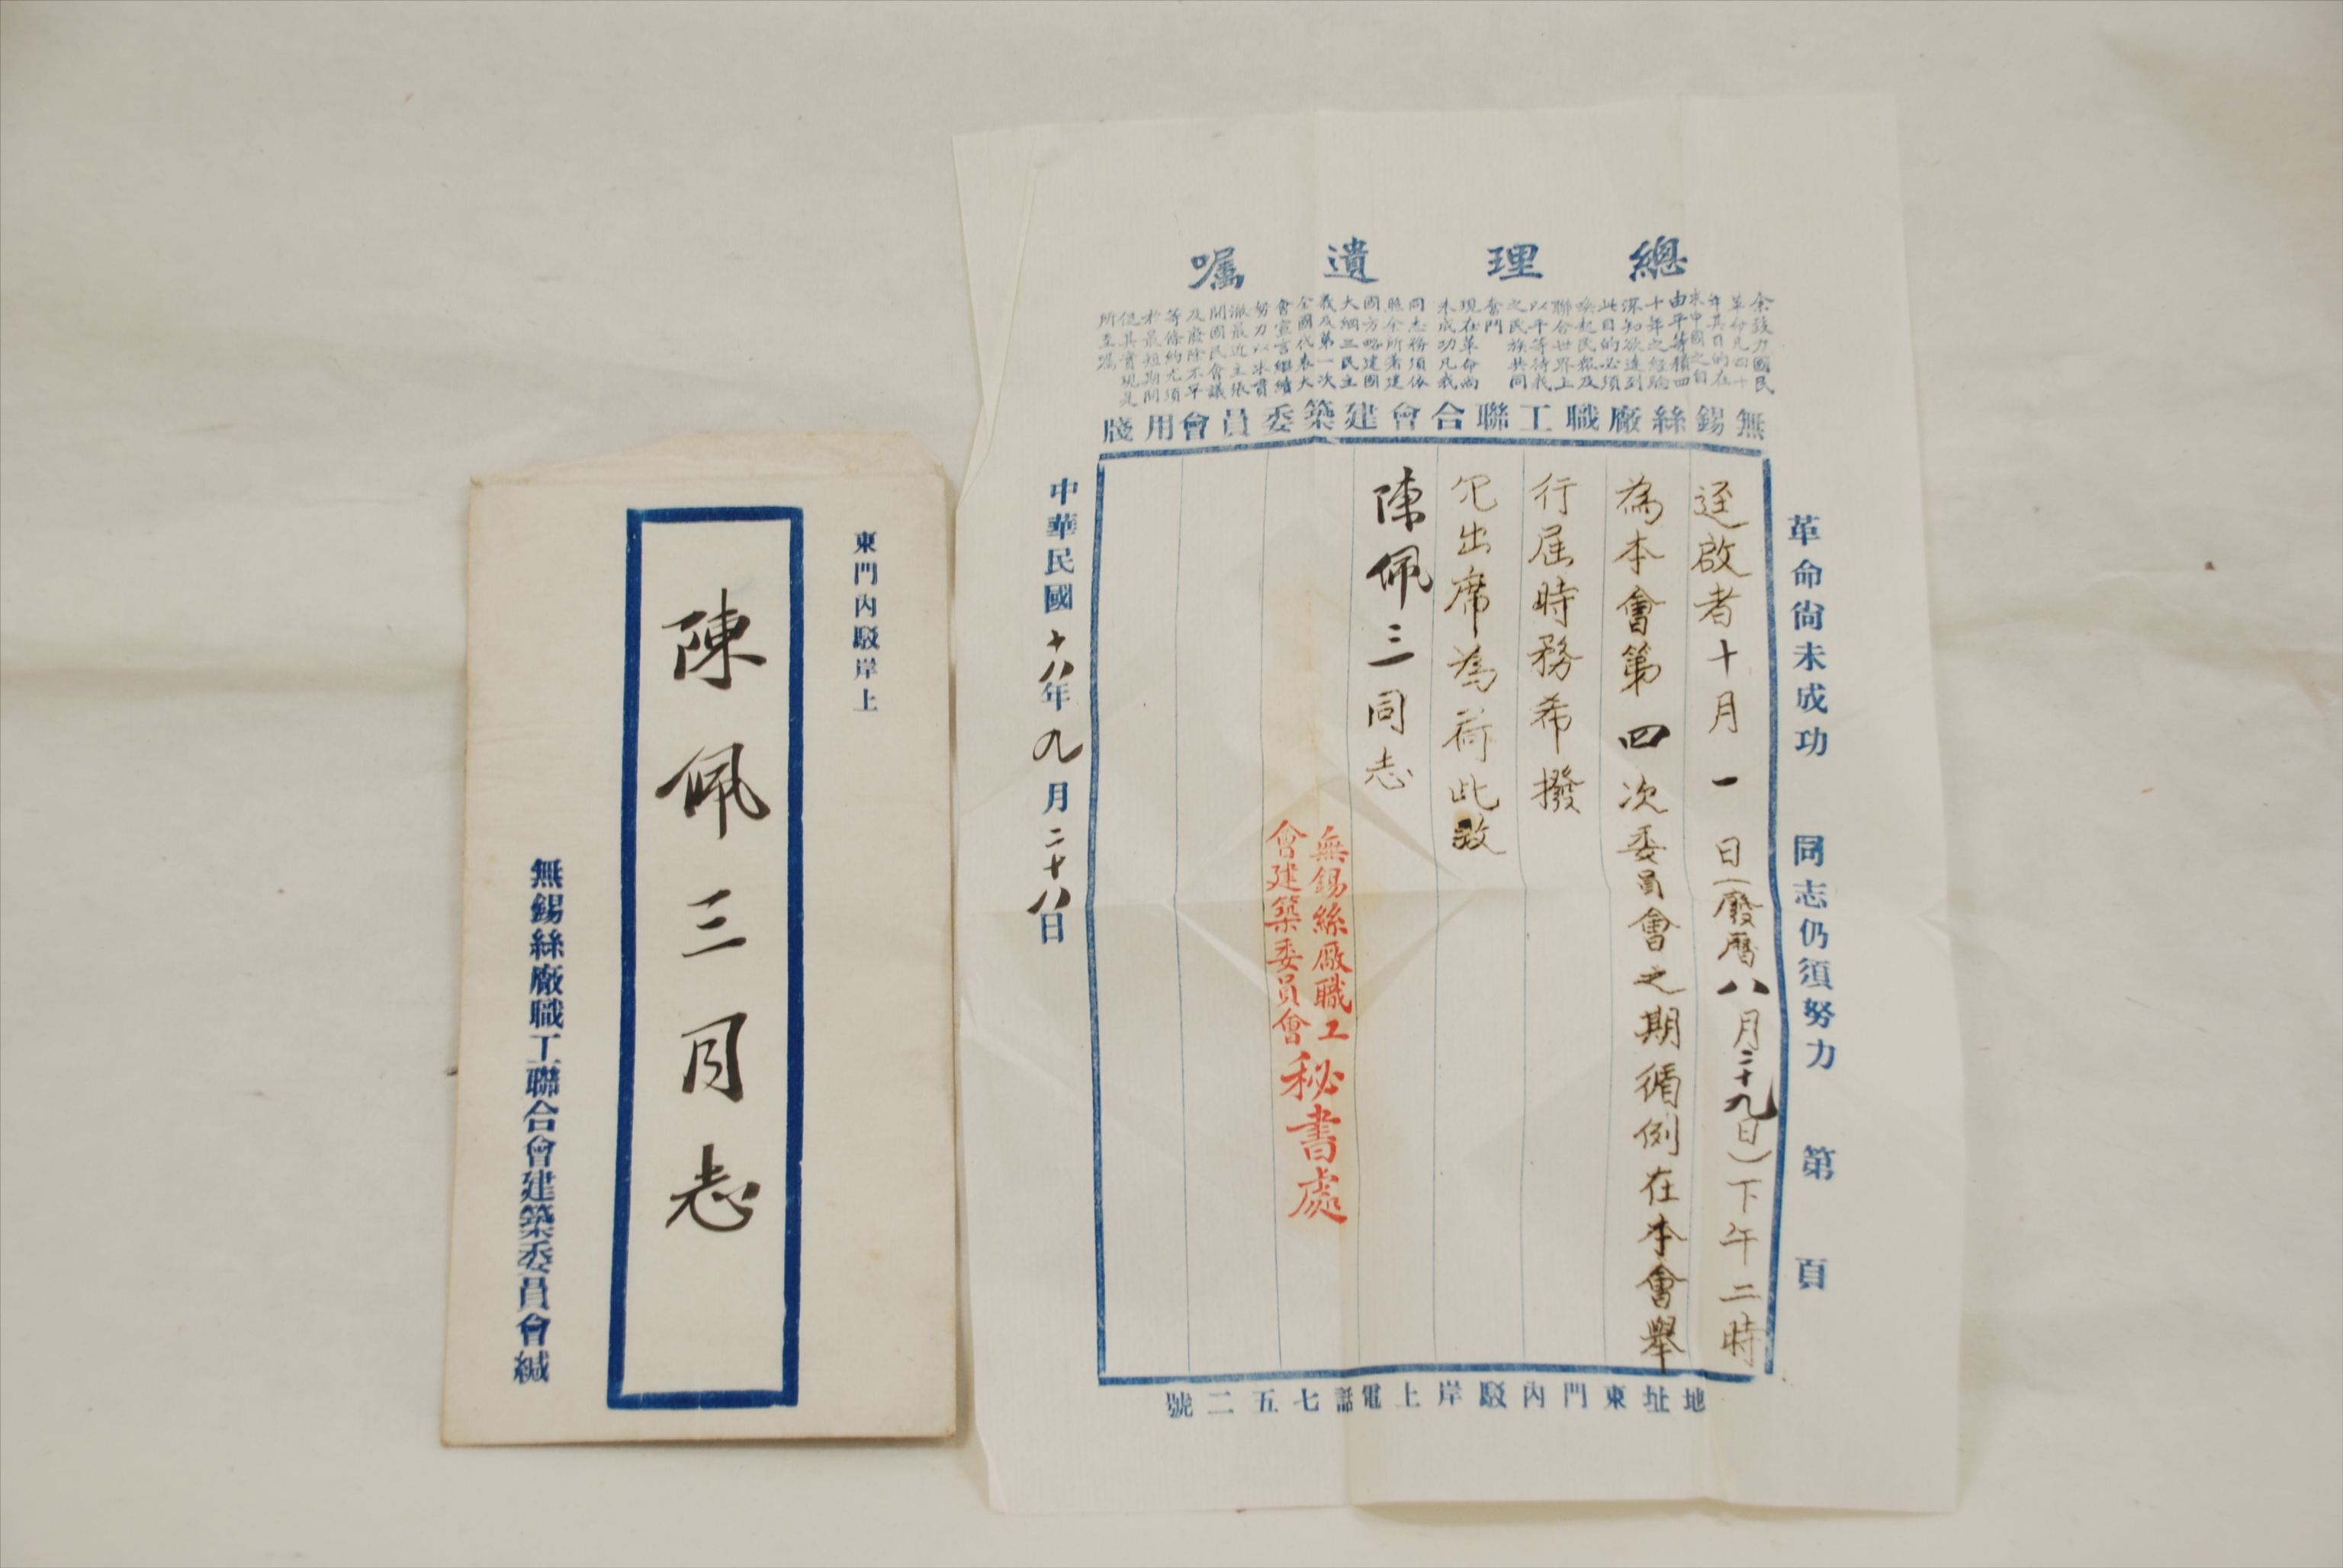 東門內駁岸上
陳佩三同志
無錫絲廠職工聯合會建築委員會緘
總理遺囑
余致力國民
革命凡四十
年其目的在
求中國之自
由平等積四
十年之經驗
深知欲達到
此目的必須
喚起民眾及
聯合世界上
以平等待我
之民族共同
奮鬥
現在革命尚
未成功凡我
同志務須依
照余所著建
國方略建國
大綱三民主
義及第一次
全國代表大
會宣言繼續
努力以求貫
澈最近主張
開國民會議
及廢除不平
等條約尤須
於最短期間
促其實現是
所至囑
無錫絲廠職工聯合會建築委員會用牋
革命尙未成功 同志仍須努力 第 頁
逕啟者十月一日(廢曆八月二十九日)下午二時
為本會第四次委員會之期循例在本會舉
行屆時務希撥
冗出席為荷此致
陳佩三同志
無錫絲廠職工
會建築委員會
秘書處
中華民國十八年九月二十八日
地址東門內駁岸上電話七五二號